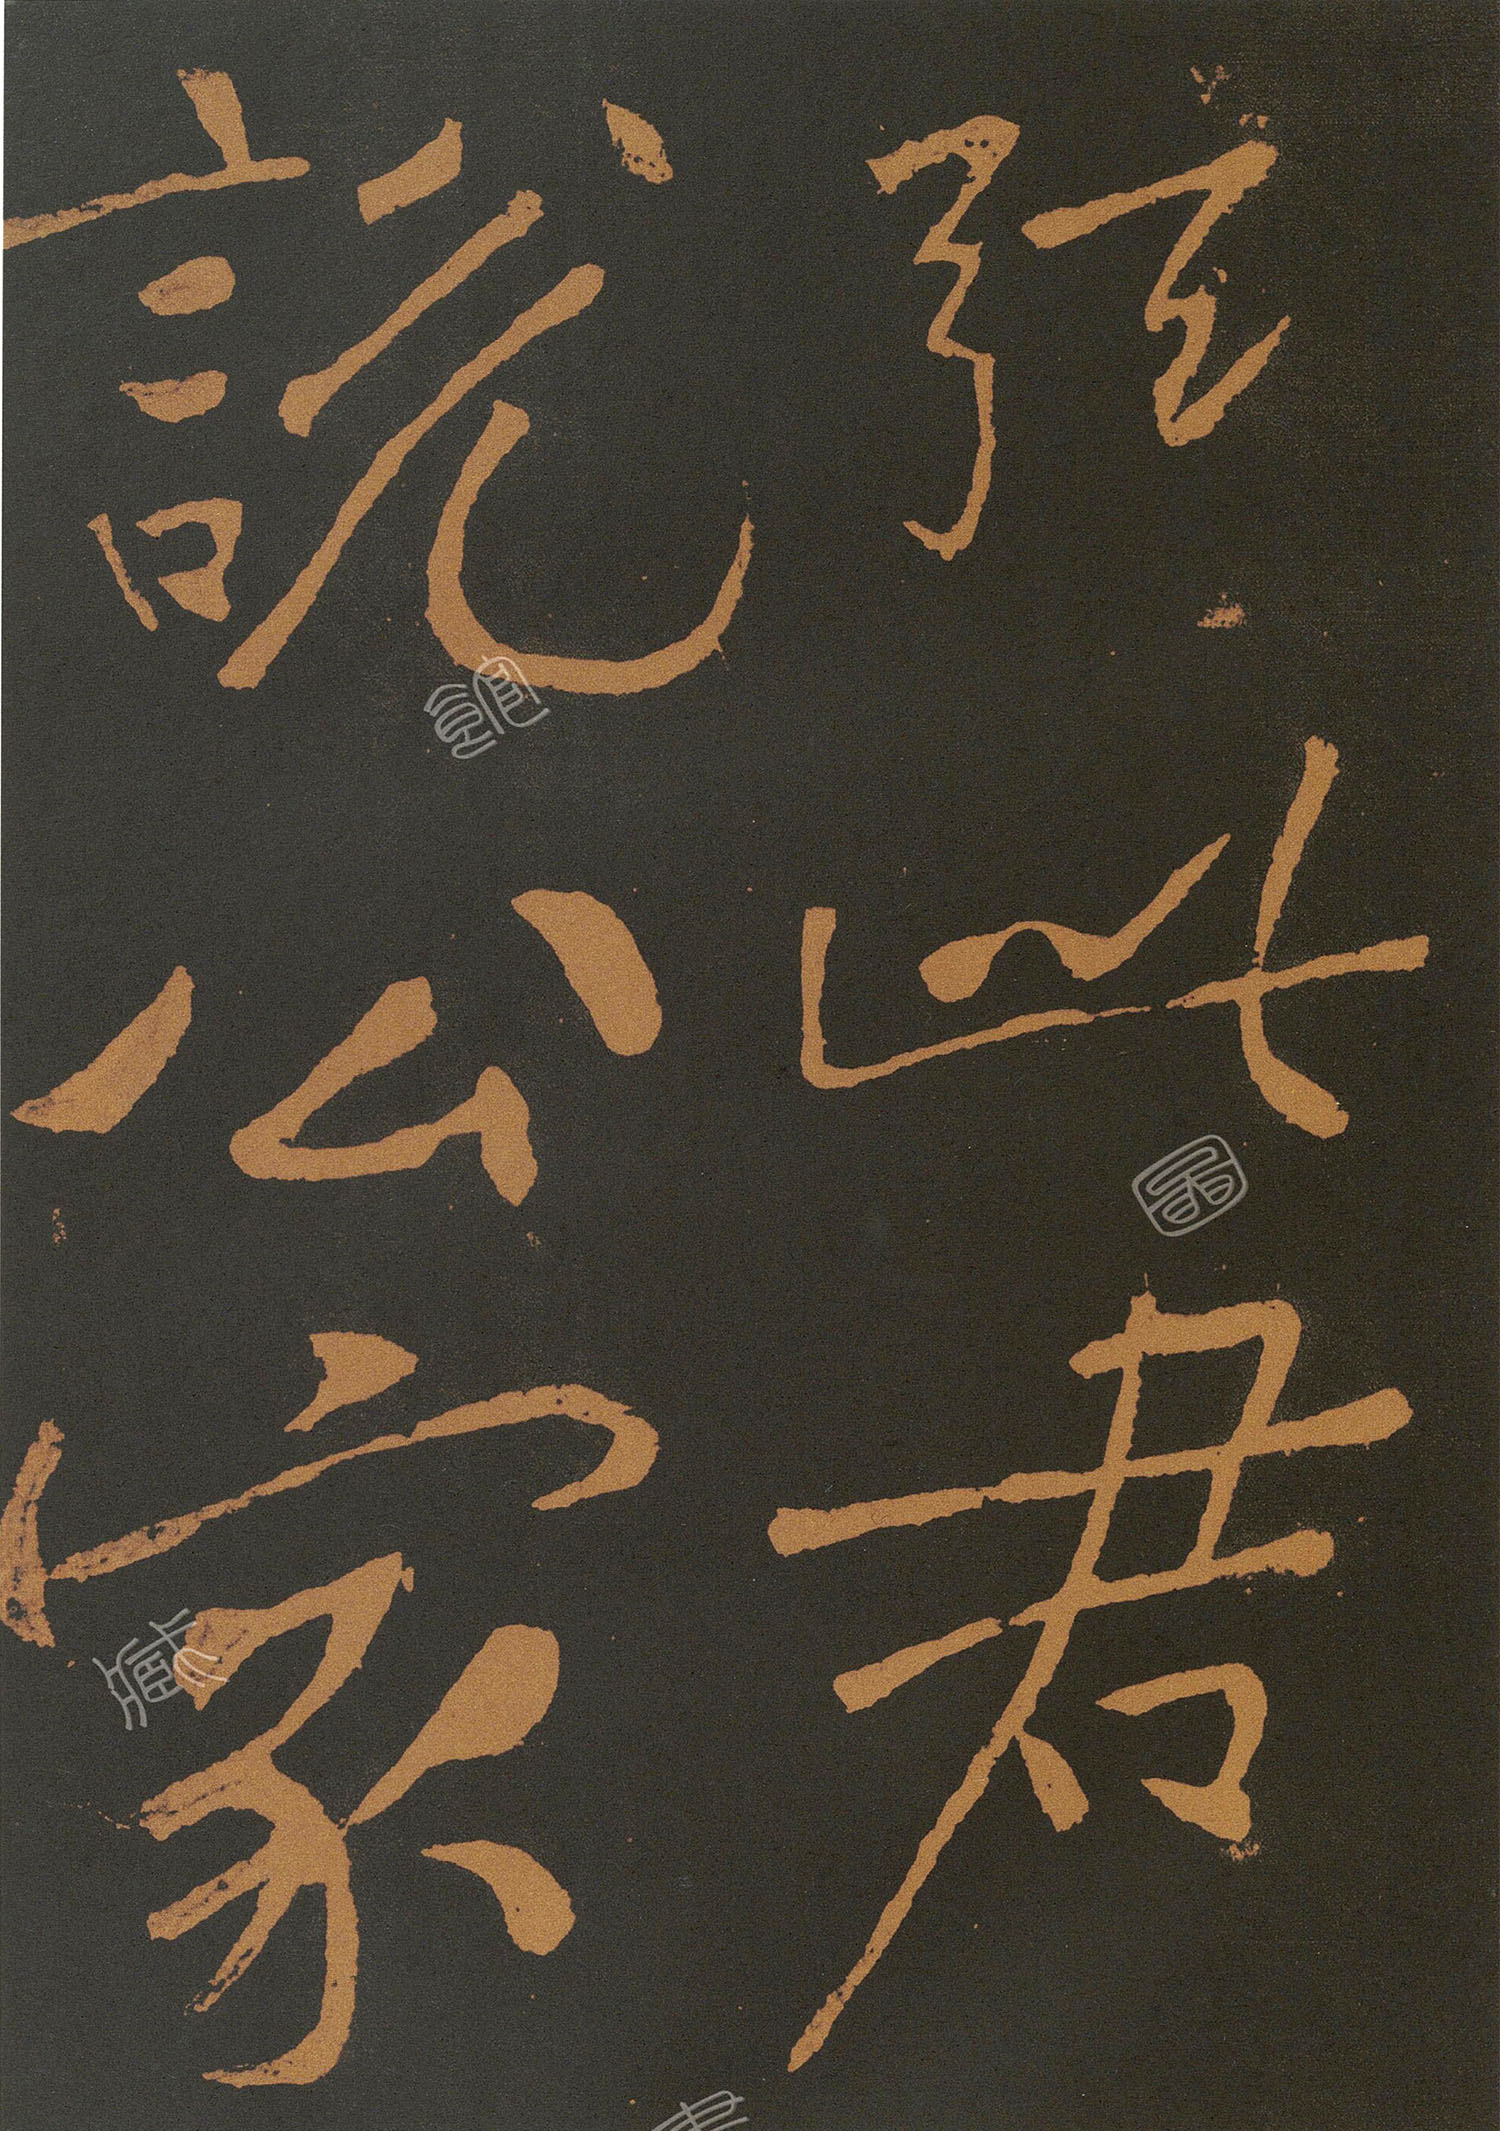 弦此君
說公家